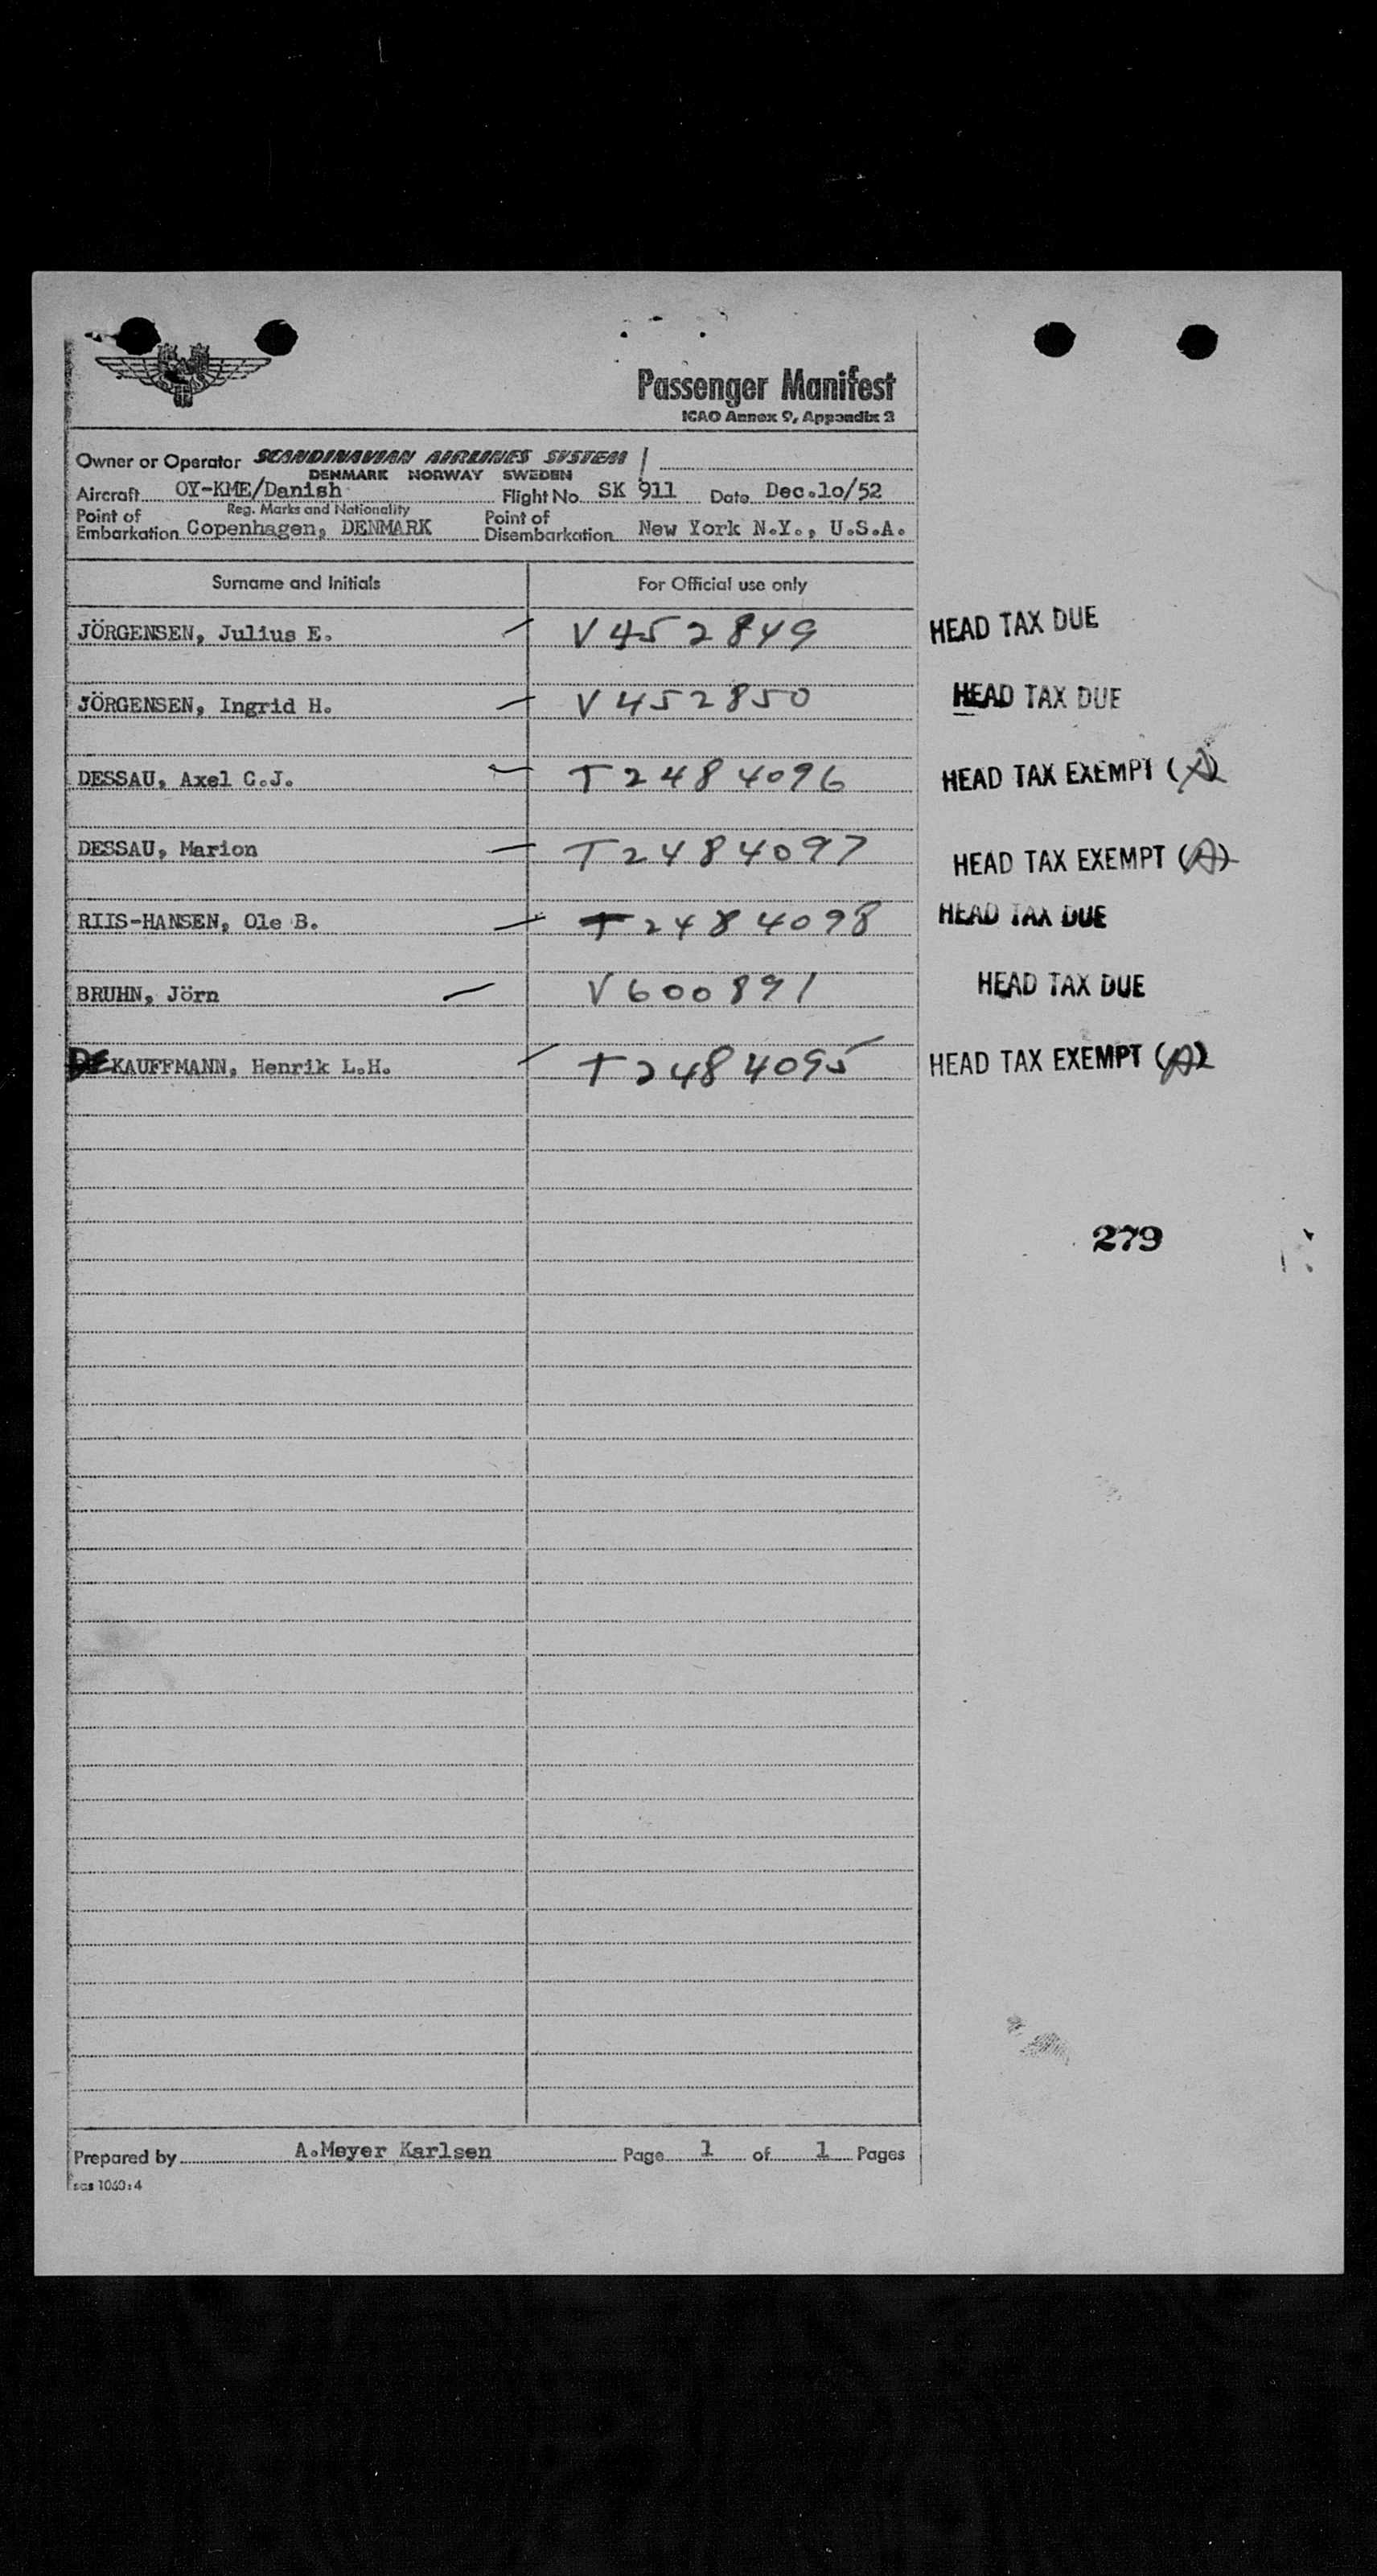 Passenger Manifest
ICAO Annex 9, Appendix 2
Owner or Operator SCANDINAVIAN AIRLINES SYSTEM
DENMARK NORWAY SWEDEN
Aircraft OY-KME/Danish Flight No. SK 911 Date Dec.10/52
Reg. Marks and Nationality
Point of Embarkation Copenhagen, DENMARK Point of Disembarkation New York N.Y., U.S.A.
Surname and Initials For Official use only
JÖRGENSEN, Julius E. V452849 HEAD TAX DUE
JÖRGENSEN, Ingrid H. V452850 HEAD TAX DUE
DESSAU, Axel C.J. T2484096 HEAD TAX EXEMPT (A)
DESSAU, Marion T2484097 HEAD TAX EXEMPT (A)
RIIS-HANSEN, Ole B. T2484098 HEAD TAX DUE
BRUHN, Jörn V600891 HEAD TAX DUE
DE KAUFFMANN, Henrik L.H. T2484095 HEAD TAX EXEMPT (A)
279
Prepared by A.Meyer Karlsen Page 1 of 1 Pages
scs 1060:4